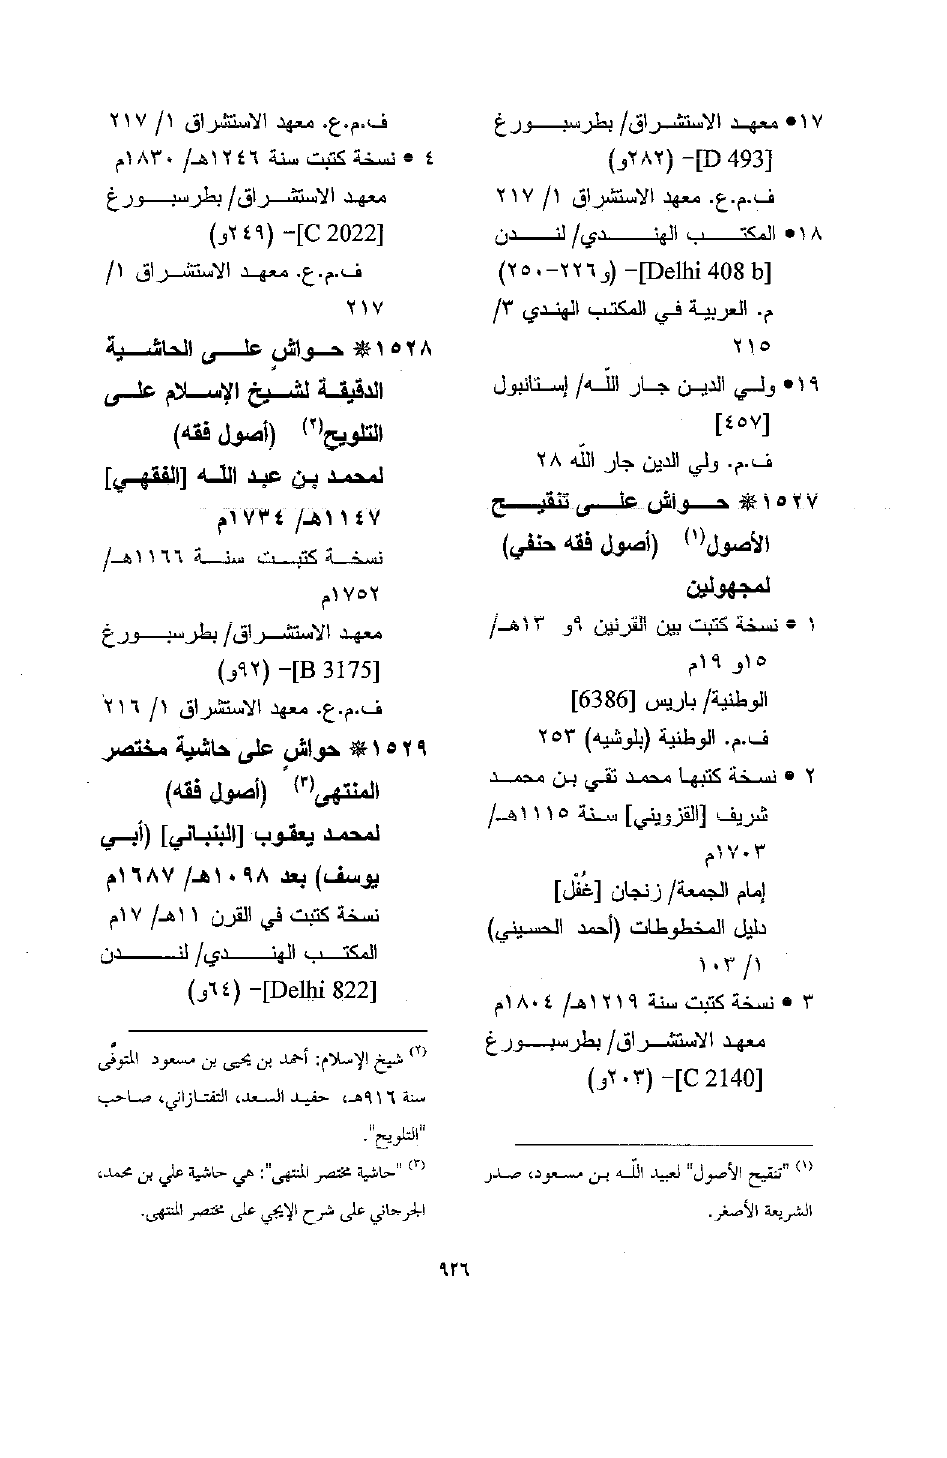 ١٧• معهد الاستشراق/ بطرسبورغ
[D 493]– (٢٨٢و)
ف.م.ع. معهد الاستشراق ١/ ٢١٧
١٨• المكتب الهندي/ لندن
[Delhi 408 b]– (و٢٢٦–٢٥٠)
م. العربية في المكتب الهندي ٣/
٢١٥
١٩• ولي الدين جار اللّه/ إستانبول
[٤٥٧]
ف.م. ولي الدين جار اللّه ٢٨
١٥٢٧* حواش على تنقيح
الأصول(١) (أصول فقه حنفي)
لمجهولين
١ • نسخة كتبت بين القرنين ٩و ١٣هـ/
١٥و ١٩م
الوطنية/ باريس [6386]
ف.م. الوطنية (بلوشيه) ٢٥٣
٢ • نسخة كتبها محمد تقي بن محمد
شريف [القزويني] سنة ١١١٥هـ/
١٧٠٣م
إمام الجمعة/ زنجان [غُفْل]
دليل المخطوطات (أحمد الحسيني)
١/ ١٠٣
٣ • نسخة كتبت سنة ١٢١٩هـ/ ١٨٠٤م
معهد الاستشراق/ بطرسبورغ
[C 2140]– (٢٠٣و)
(١) "تنقيح الأصول" لعبيد اللّه بن مسعود، صدر
الشريعة الأصغر.
ف.م.ع. معهد الاستشراق ١/ ٢١٧
٤ • نسخة كتبت سنة ١٢٤٦هـ/ ١٨٣٠م
معهد الاستشراق/ بطرسبورغ
[C 2022]– (٢٤٩و)
ف.م.ع. معهد الاستشراق ١/
٢١٧
١٥٢٨* حواشٍ على الحاشية
الدقيقة لشيخ الإسلام على
التلويح(٢) (أصول فقه)
لمحمد بن عبد الله [الفقهي]
١١٤٧هـ/ ١٧٣٤م
نسخة كتبت سنة ١١٦٦هـ/
١٧٥٢م
معهد الاستشراق/ بطرسبورغ
[B 3175]– (٩٢و)
ف.م.ع. معهد الاستشراق ١/ ٢١٦
١٥٢٩* حواشٍ على حاشية مختصر
المنتهى(٣) (أصول فقه)
لمحمد يعقوب [البنباني] (أبي
يوسف) بعد ١٠٩٨هـ/ ١٦٨٧م
نسخة كتبت في القرن ١١هـ/ ١٧م
المكتب الهندي/ لندن
[Delhi 822]– (٦٤و)
(٢) شيخ الإسلام: أحمد بن يحيى بن مسعود المتوفَّى
سنة ٩١٦هـ، حفيد السعد، التفتازاني، صاحب
"التلويح".
(٣) "حاشية مختصر المنتهى": هي حاشية علي بن محمد،
الجرجاني على شرح الإيجي على مختصر المنتهى.
٩٢٦